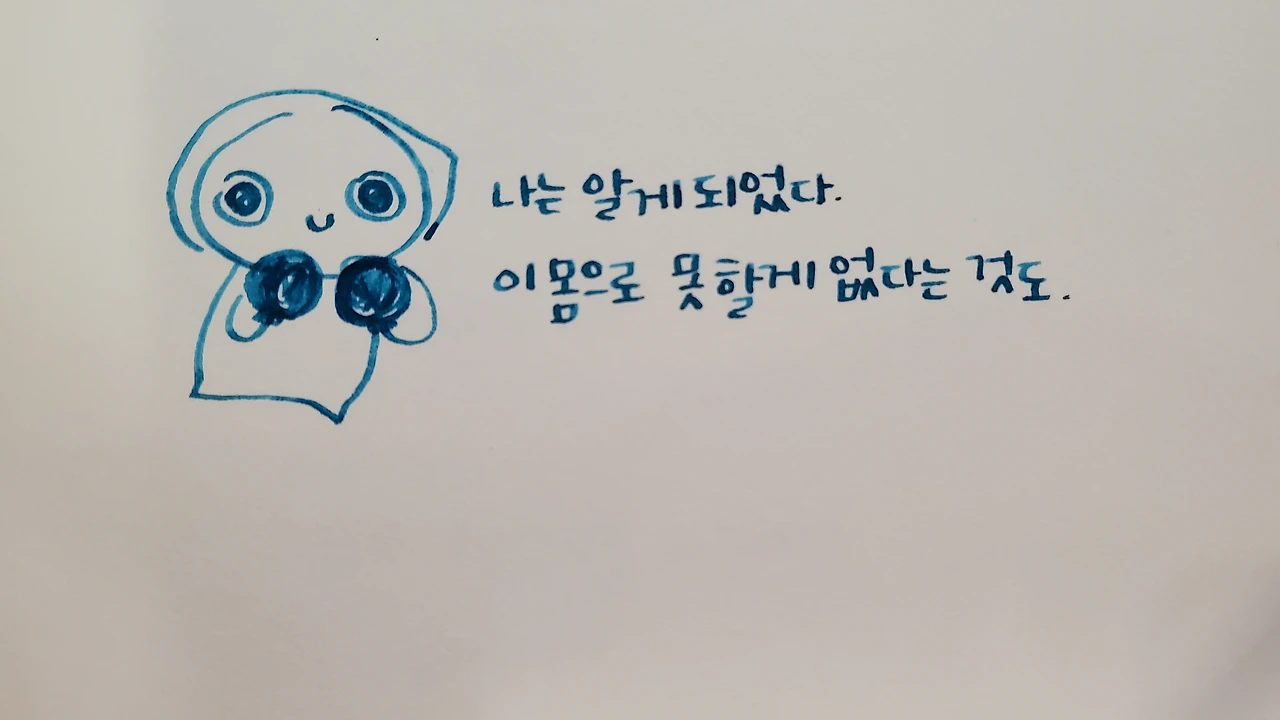 나는 알게 되었다.
이 몸으로 못할게 없다는 것도.